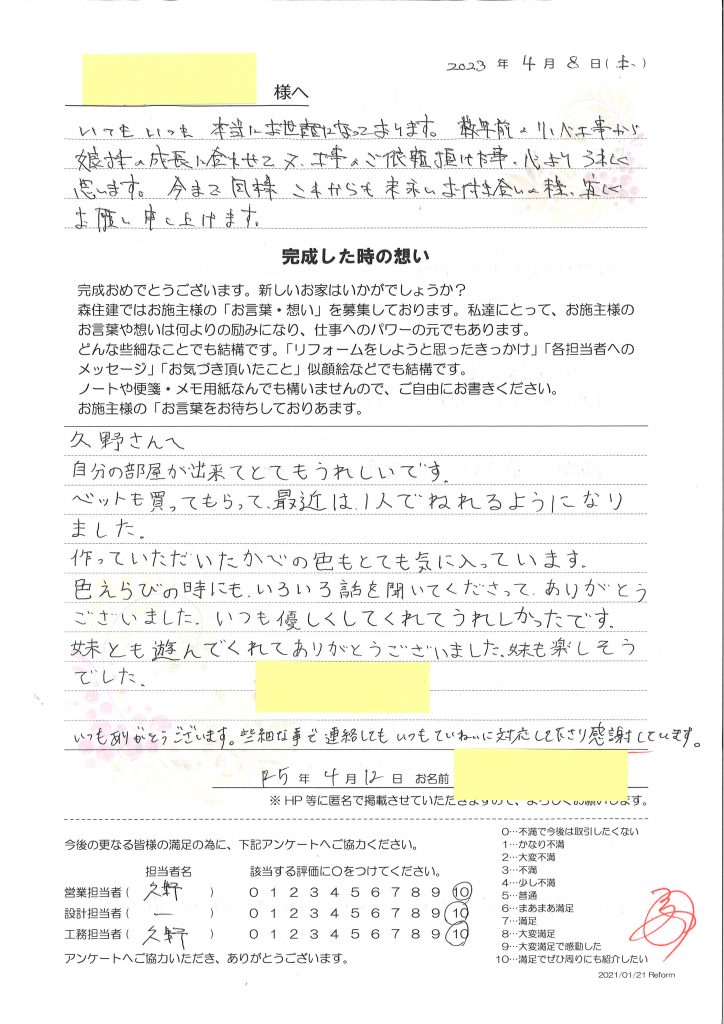 2023 年 4 月 8 日(土)
様へ
いつもいつも 本当にお世話になっております。 数年前の小工事から
娘様の成長に合わせて又、工事のご依頼頂けた事、心よりうれしく
思います。 今まで同様 これからも末永いお付き合いの程、宜しく
お願い申し上げます。
完成した時の想い
完成おめでとうございます。新しいお家はいかがでしょうか?
森住建ではお施主様の「お言葉・想い」を募集しております。私達にとって、お施主様の
お言葉や想いは何よりの励みになり、仕事へのパワーの元でもあります。
どんな些細なことでも結構です。「リフォームをしようと思ったきっかけ」「各担当者への
メッセージ」「お気づき頂いたこと」似顔絵などでも結構です。
ノートや便箋・メモ用紙なんでも構いませんので、ご自由にお書きください。
お施主様の「お言葉をお待ちしておりあます。
久野さんへ
自分の部屋が出来てとてもうれしいです。
ベットも買ってもらって、最近は、1人でねれるようになり
ました。
作っていただいたかべの色もとても気に入っています。
色えらびの時にも、いろいろ話を聞いてくださって、ありがとう
ございました。いつも優しくしてくれてうれしかったです。
妹とも遊んでくれてありがとうございました。妹も楽しそう
でした。
いつもありがとうございます。些細な事で連絡しても いつもていねいに対応して下さり感謝しています。
R5 年 4 月 12 日 お名前
※ HP 等に匿名で掲載させていただきますので、よろしくお願いします。
今後の更なる皆様の満足の為に、下記アンケートへご協力ください。
担当者名 該当する評価に○をつけてください。
営業担当者( 久野 ) 0 1 2 3 4 5 6 7 8 9 10
設計担当者( ー ) 0 1 2 3 4 5 6 7 8 9 10
工務担当者( 久野 ) 0 1 2 3 4 5 6 7 8 9 10
アンケートへご協力いただき、ありがとうございます。
0…不満で今後は取引したくない
1…かなり不満
2…大変不満
3…不満
4…少し不満
5…普通
6…まあまあ満足
7…満足
8…大変満足
9…大変満足で感動した
10…満足でぜひ周りにも紹介したい
2021/01/21 Reform